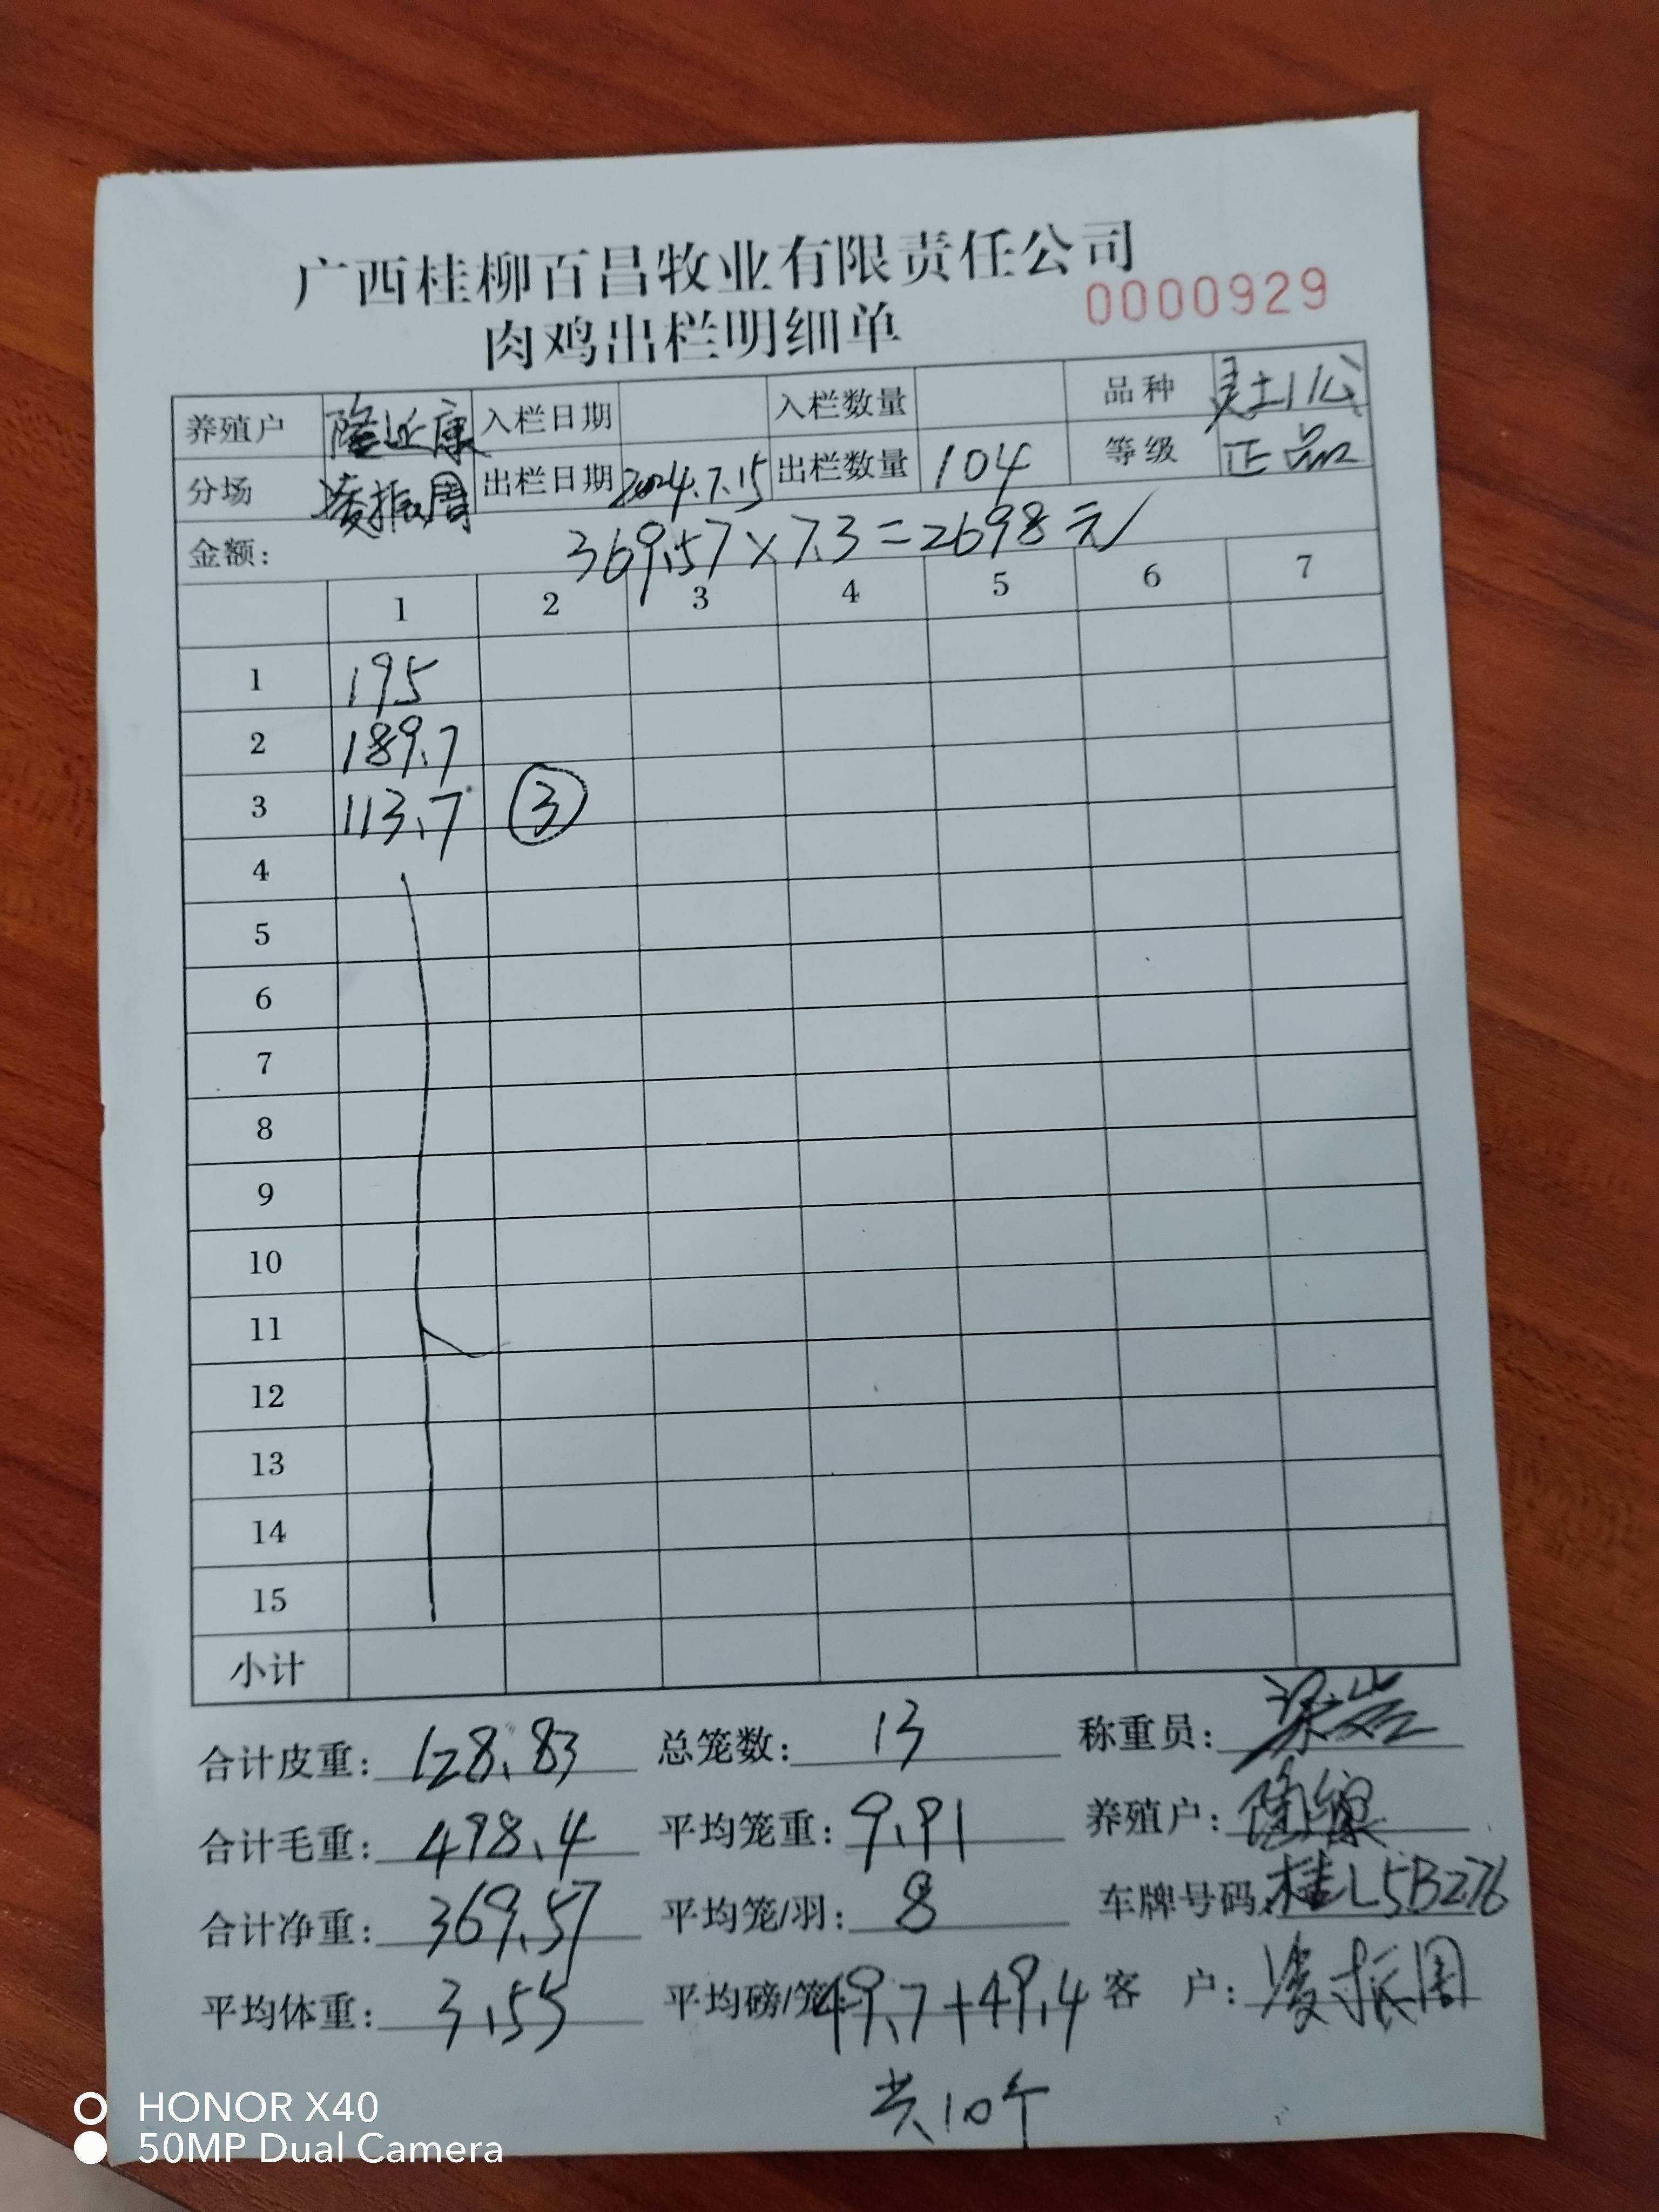 广西桂柳百昌牧业有限责任公司
肉鸡出栏明细单
0000929
养殖户 隆延康 入栏日期 入栏数量 品种 灵土1公
分场 凌振周 出栏日期 2024.7.15 出栏数量 104 等级 正品
金额: 369.57×7.3=2698元
1 2 3 4 5 6 7
1 195
2 189.7
3 113.7 ③
4
5
6
7
8
9
10
11
12
13
14
15
小计
合计皮重: 128.83 总笼数: 13 称重员:
合计毛重: 498.4 平均笼重: 9.91 养殖户:
合计净重: 369.57 平均笼/羽: 8 车牌号码: 桂L5B276
平均体重: 3.55 平均磅/笼: 49.7+49.4 客 户: 凌振周
共10个
HONOR X40
50MP Dual Camera